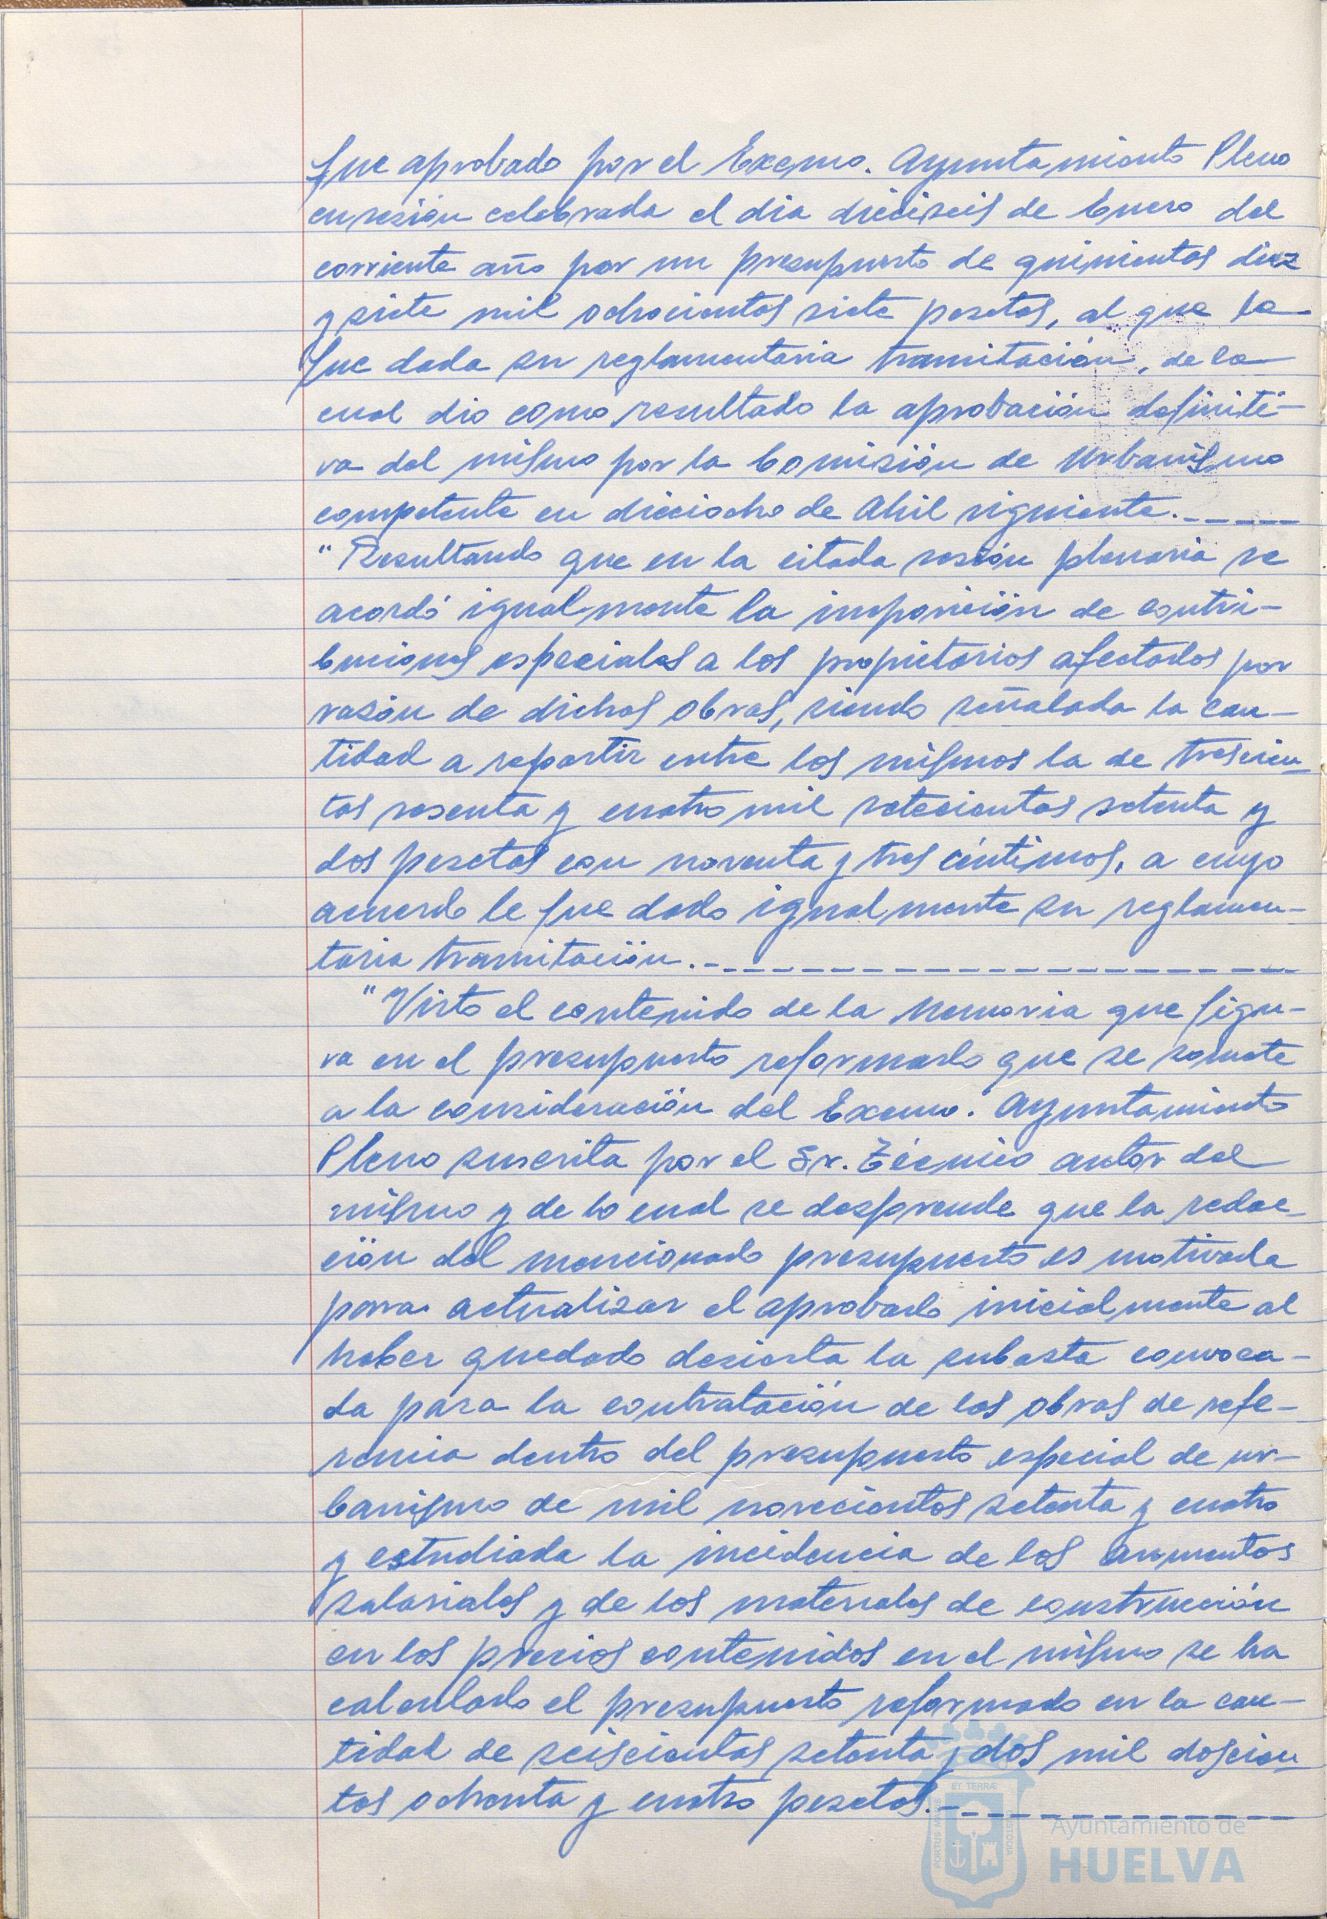 fue aprobado por el Excmo. Ayuntamiento Pleno
en sesión celebrada el dia dieciseis de Enero del
corriente año por un presupuesto de quinientas diez
y siete mil ochocientas siete pesetas, al que le
fue dada su reglamentaria tramitación, de la
cual dio como resultado la aprobación definiti-
va del mismo por la Comisión de Urbanismo
competente en dieciocho de Abril siguiente.
"Resultando que en la citada sesión plenaria se
acordó igualmente la imposición de contri-
buciones especiales a los propietarios afectados por
razón de dichas obras, siendo señalada la can-
tidad a repartir entre los mismos la de trescien-
tas sesenta y cuatro mil setecientas setenta y
dos pesetas con noventa y tres céntimos, a cuyo
acuerdo le fue dado igualmente su reglamen-
taria tramitación.
"Visto el contenido de la Memoria que figu-
ra en el presupuesto reformado que se somete
a la consideración del Excmo. Ayuntamiento
Pleno suscrita por el Sr. Técnico autor del
mismo y de lo cual se desprende que la redac-
ción del mencionado presupuesto es motivada
para actualizar el aprobado inicialmente al
haber quedado desierta la subasta convoca-
da para la contratación de las obras de refe-
rencia dentro del presupuesto especial de ur-
banismo de mil novecientos setenta y cuatro
y estudiada la incidencia de los aumentos
salariales y de los materiales de construcción
en los precios contenidos en el mismo se ha
calculado el presupuesto reformado en la can-
tidad de seiscientas setenta y dos mil doscien-
tas ochenta y cuatro pesetas.
ET TERRÆ
Ayuntamiento de
HUELVA